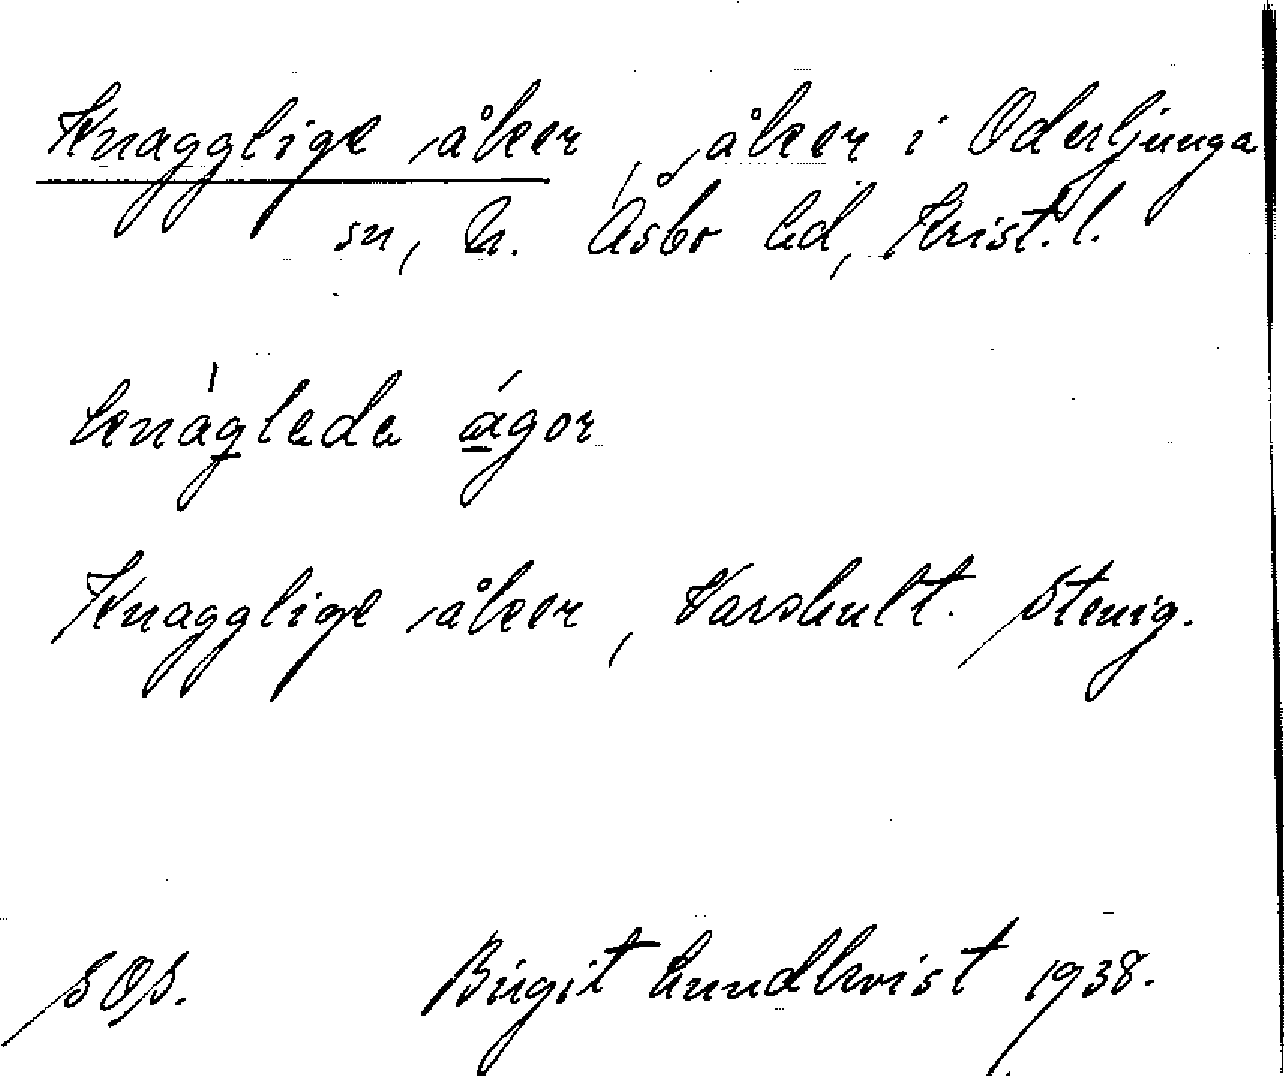 Knagglige åker, åker i Oderljunga
sn, N. Åsbo hd, Krist. l.
knáglada ágor
Knagglige åker, Varshult. Stenig.
SOS. Birgit Lundkvist 1938.